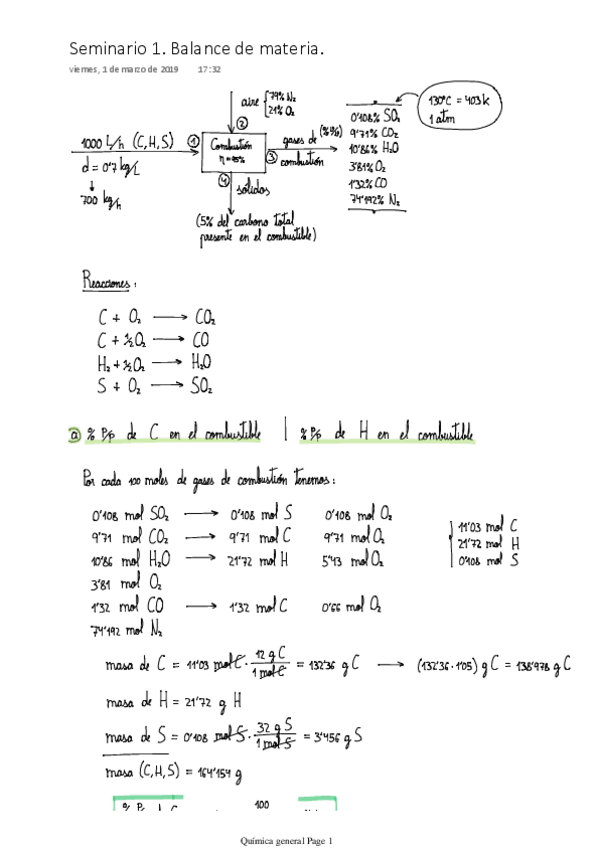 Seminario 1. Balance de materia.
viernes, 1 de marzo de 2019 17:32
aire { 79% N₂
21% O₂
②
1000 L/h (C,H,S) ①
d = 0'7 kg/L
↓
700 kg/h
Combustión
③
gases de (%)
combustión
0'108% SO₂
9'71% CO₂
10'86% H₂O
3'81% O₂
1'32% CO
74'192% N₂
130ºC = 403 K
1 atm
④
sólidos
(5% del carbono total
presente en el combustible)
Reacciones:
C + O₂ → CO₂
C + ½O₂ → CO
H₂ + ½O₂ → H₂O
S + O₂ → SO₂
ⓐ % P/p de C en el combustible | % P/p de H en el combustible
Por cada 100 moles de gases de combustión tenemos:
0'108 mol SO₂ → 0'108 mol S 0'108 mol O₂
9'71 mol CO₂ → 9'71 mol C 9'71 mol O₂
10'86 mol H₂O → 21'72 mol H 5'43 mol O₂
3'81 mol O₂
1'32 mol CO → 1'32 mol C 0'66 mol O₂
74'192 mol N₂
11'03 mol C
21'72 mol H
0'108 mol S
masa de C = 11'03 mol C · 12 g C / 1 mol C = 132'36 g C → (132'36 · 1'05) g C = 138'978 g C
masa de H = 21'72 g H
masa de S = 0'108 mol S · 32 g S / 1 mol S = 3'456 g S
masa (C,H,S) = 164'154 g
100
Química general Page 1